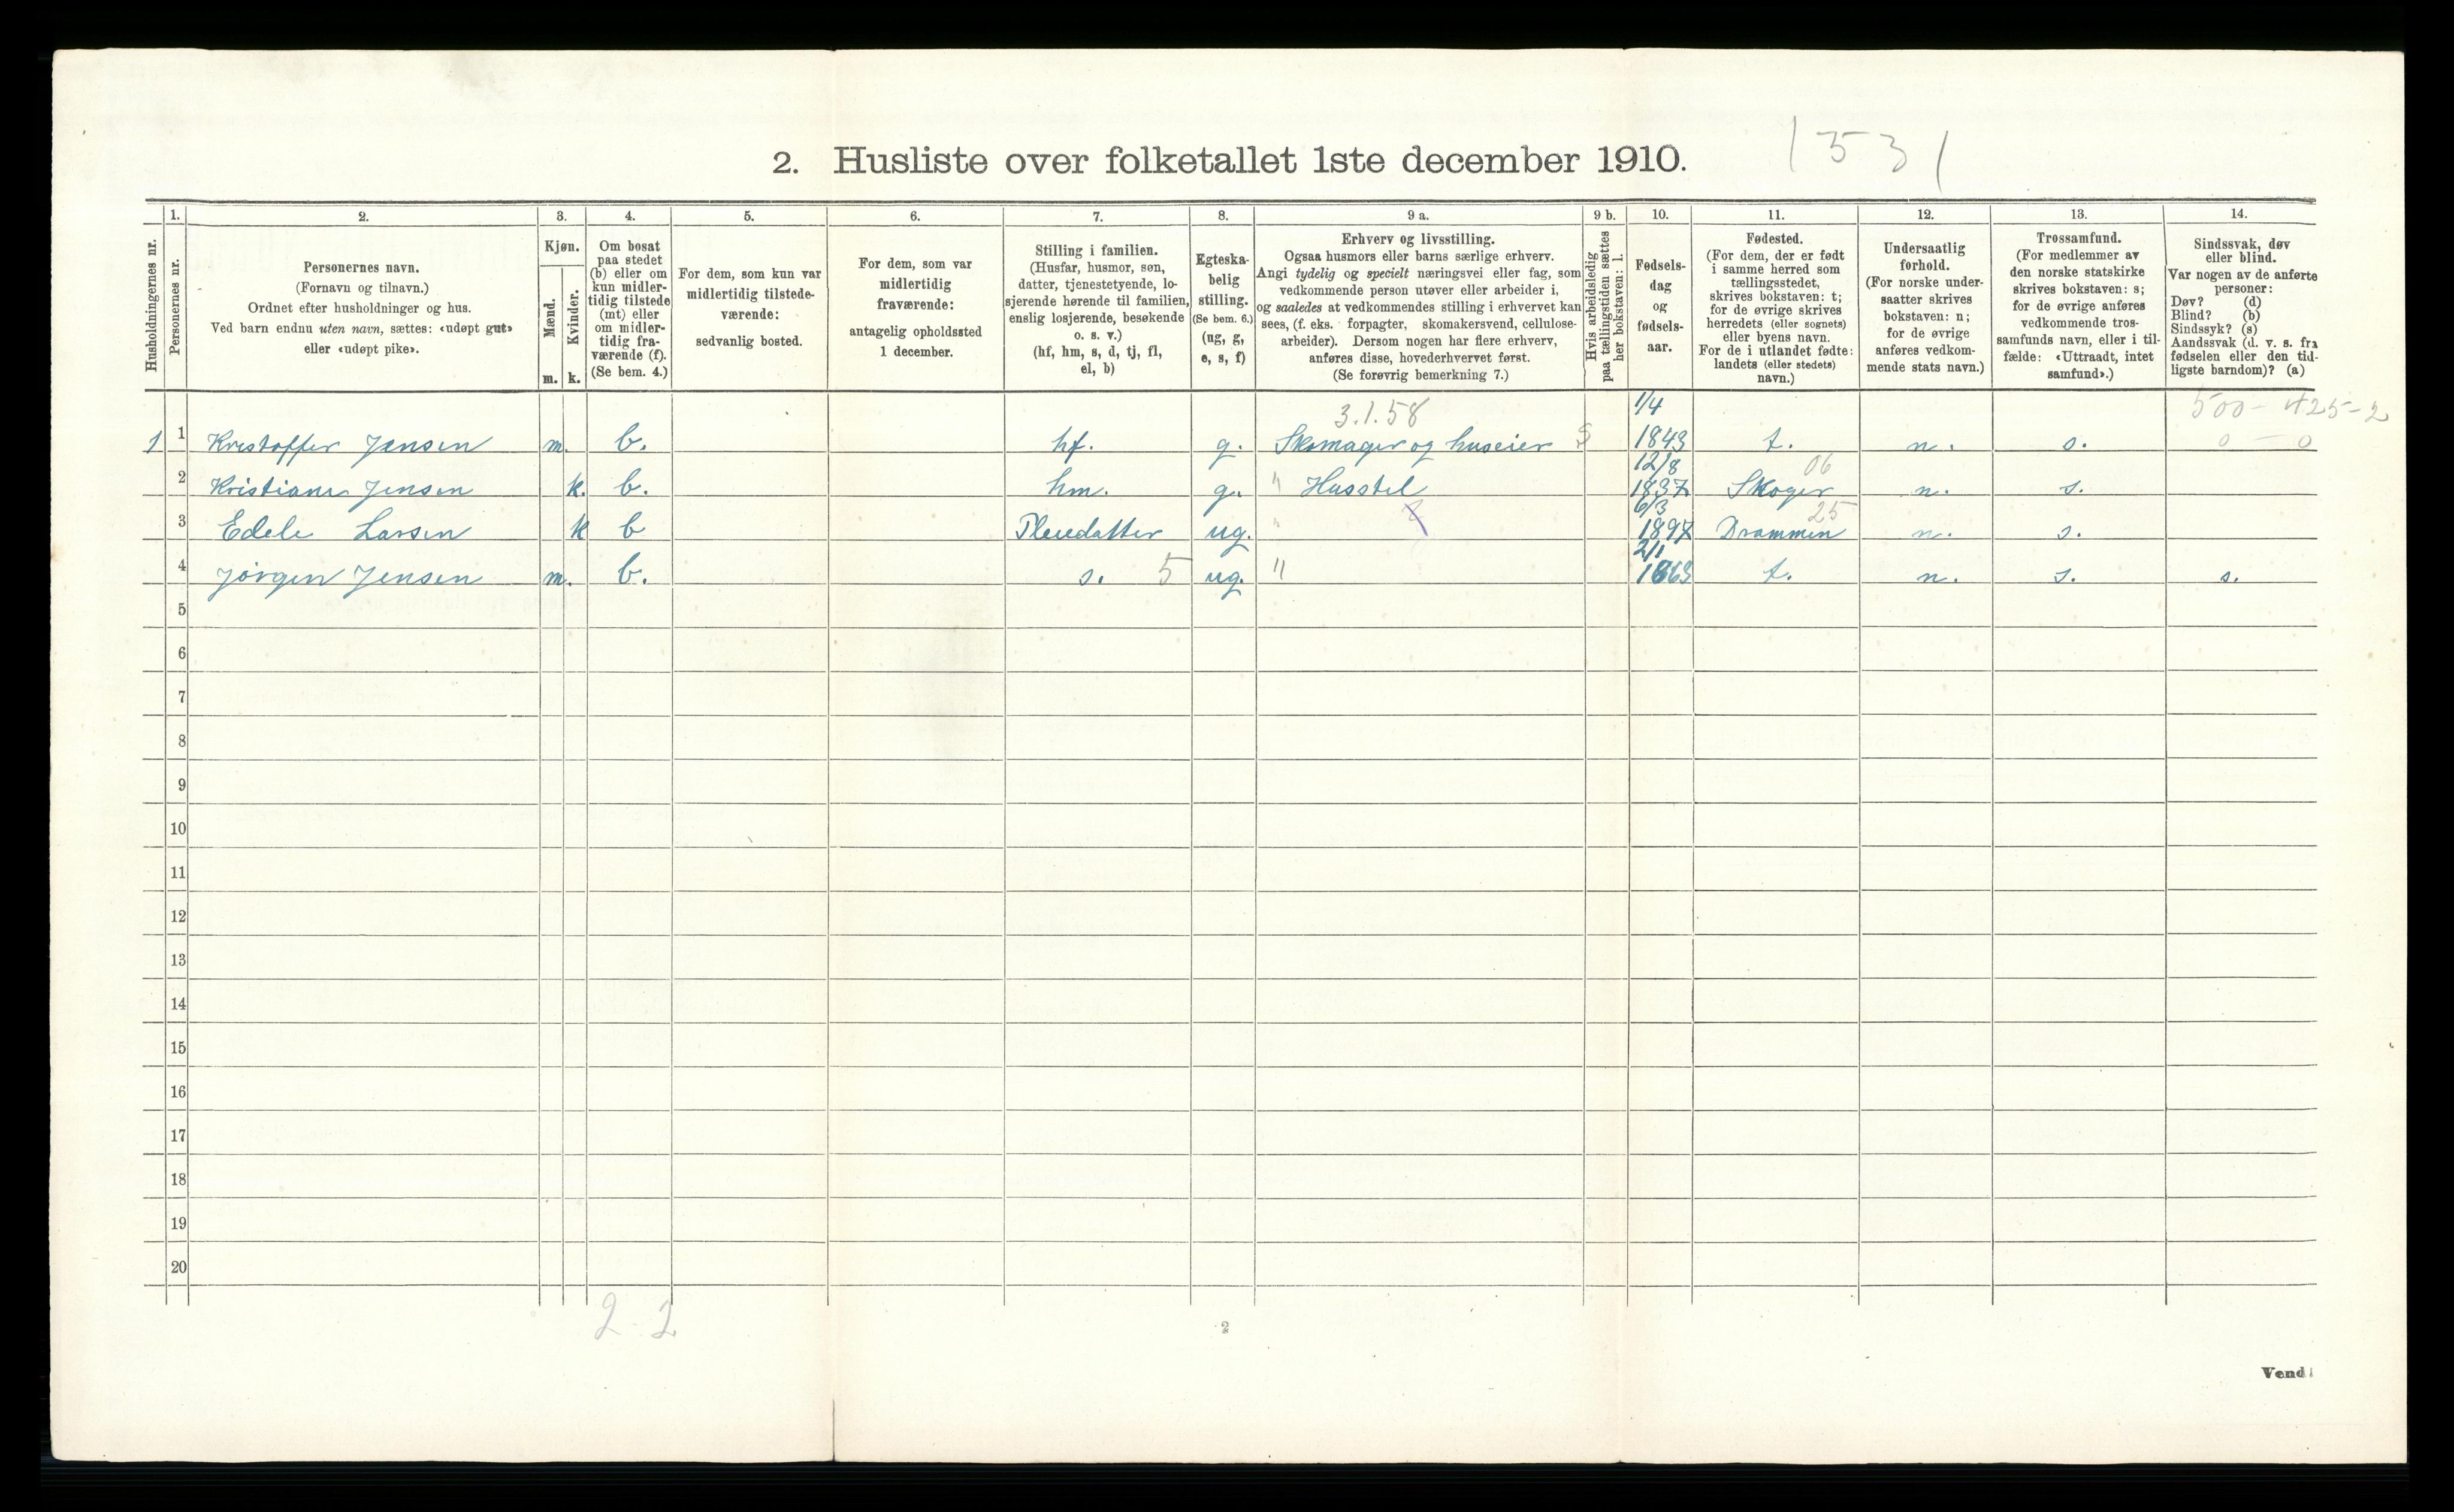 2. Husliste over folketallet 1ste december 1910.
1531
Husholdningernes nr.
1.
Personernes nr.
2.
Personernes navn.
(Fornavn og tilnavn.)
Ordnet efter husholdninger og hus.
Ved barn endnu uten navn, sættes: «udøpt gut»
eller «udøpt pike».
3.
Kjøn.
Mænd.
Kvinder.
m. k.
4.
Om bosat
paa stedet
(b) eller om
kun midler-
tidig tilstede
(mt) eller
om midler-
tidig fra-
værende (f).
(Se bem. 4.)
5.
For dem, som kun var
midlertidig tilstede-
værende:
sedvanlig bosted.
6.
For dem, som var
midlertidig
fraværende:
antagelig opholdssted
1 december.
7.
Stilling i familien.
(Husfar, husmor, søn,
datter, tjenestetyende, lo-
sjerende hørende til familien,
enslig losjerende, besøkende
o. s. v.)
(hf, hm, s, d, tj, fl,
el, b)
8.
Egteska-
belig
stilling.
(Se bem. 6.)
(ug, g,
e, s, f)
9 a.
Erhverv og livsstilling.
Ogsaa husmors eller barns særlige erhverv.
Angi tydelig og specielt næringsvei eller fag, som
vedkommende person utøver eller arbeider i,
og saaledes at vedkommendes stilling i erhvervet kan
sees, (f. eks. forpagter, skomakersvend, cellulose-
arbeider). Dersom nogen har flere erhverv,
anføres disse, hovederhvervet først.
(Se forøvrig bemerkning 7.)
9 b.
Hvis arbeidsledig
paa tællingstiden sættes
her bokstaven: l.
10.
Fødsels-
dag
og
fødsels-
aar.
11.
Fødested.
(For dem, der er født
i samme herred som
tællingsstedet,
skrives bokstaven: t;
for de øvrige skrives
herredets (eller sognets)
eller byens navn.
For de i utlandet fødte:
landets (eller stedets)
navn.)
12.
Undersaatlig
forhold.
(For norske under-
saatter skrives
bokstaven: n;
for de øvrige
anføres vedkom-
mende stats navn.)
13.
Trossamfund.
(For medlemmer av
den norske statskirke
skrives bokstaven: s;
for de øvrige anføres
vedkommende tros-
samfunds navn, eller i til-
fælde: «Uttraadt, intet
samfund».)
14.
Sindssvak, døv
eller blind.
Var nogen av de anførte
personer:
Døv? (d)
Blind? (b)
Sindssyk? (s)
Aandssvak (d. v. s. fra
fødselen eller den tid-
ligste barndom)? (a)
3.1.58 1/4 500-425-2
1 1 Kristoffer Jensen m. b. hf. g. Skomager og huseier S 1843 t. n. s. 0 - 0
12/8 06
2 Kristiane Jensen k. b. hm. g. " Husstel 1837 Skoger n. s.
6/3 25
3 Edele Larsen k b Pleiedatter ug. " 1897 Drammen n. s.
2/1
4 Jörgen Jensen m. b. s. 5 ug. " 1863 t. n. s. s.
5
6
7
8
9
10
11
12
13
14
15
16
17
18
19
20
2 2
2
Vend!